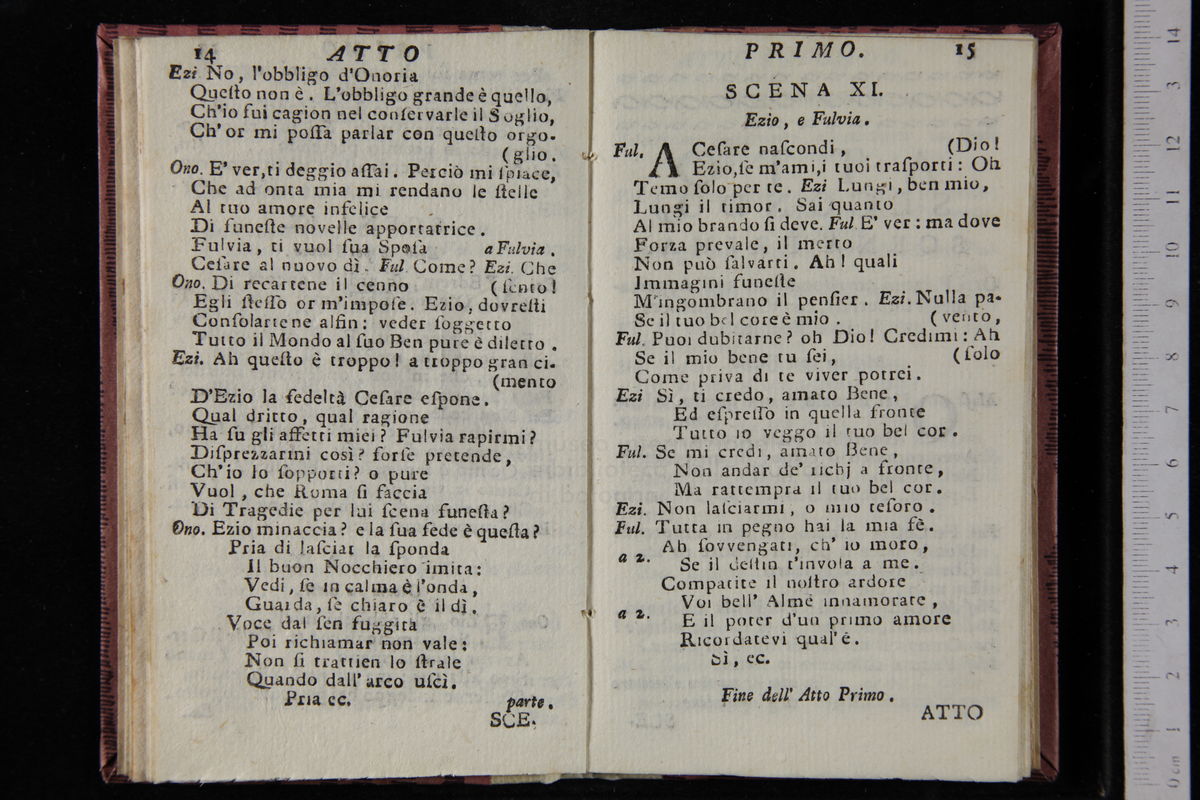 14 ATTO
Ezi No, l'obbligo d'Onoria
Queſto non è. L'obbligo grande è quello,
Ch'io fui cagion nel conſervarle il Soglio,
Ch'or mi poſſa parlar con queſto orgo-
(glio.
Ono. E' ver, ti deggio aſſai. Perciò mi ſpiace,
Che ad onta mia mi rendano le ſtelle
Al tuo amore infelice
Di funeſte novelle apportatrice.
Fulvia, ti vuol ſua Spoſa a Fulvia.
Ceſare al nuovo dì. Ful Come? Ezi. Che
Ono. Di recartene il cenno (ſento!
Egli ſteſſo or m'impoſe. Ezio, dovreſti
Conſolartene alfin: veder ſoggetto
Tutto il Mondo al ſuo Ben pure è diletto.
Ezi. Ah queſto è troppo! a troppo gran ci-
(mento
D'Ezio la fedeltà Ceſare eſpone.
Qual dritto, qual ragione
Ha ſu gli affetti miei? Fulvia rapirmi?
Diſprezzarmi così? forſe pretende,
Ch'io lo ſopporti? o pure
Vuol, che Roma ſi faccia
Di Tragedie per lui ſcena funeſta?
Ono. Ezio minaccia? e la ſua fede è queſta?
Pria di laſciar la ſponda
Il buon Nocchiero imita:
Vedi, ſe in calma è l'onda,
Guarda, ſe chiaro è il dì.
Voce dal ſen fuggita
Poi richiamar non vale:
Non ſi trattien lo ſtrale
Quando dall'arco uſcì.
Pria ec. parte.
SCE.
PRIMO. 15
SCENA XI.
Ezio, e Fulvia.
Ful. A Ceſare naſcondi, (Dio!
Ezio, ſe m'ami, i tuoi traſporti: Oh
Temo ſolo per te. Ezi Lungi, ben mio,
Lungi il timor. Sai quanto
Al mio brando ſi deve. Ful E' ver: ma dove
Forza prevale, il merto
Non può ſalvarti. Ah! quali
Immagini funeſte
M'ingombrano il penſier. Ezi. Nulla pa-
Se il tuo bel core è mio. (vento,
Ful. Puoi dubitarne? oh Dio! Credimi: Ah
Se il mio bene tu ſei, (ſolo
Come priva di te viver potrei.
Ezi Sì, ti credo, amato Bene,
Ed eſpreſſo in quella fronte
Tutto io veggo il tuo bel cor.
Ful. Se mi credi, amato Bene,
Non andar de' riſchj a fronte,
Ma rattempra il tuo bel cor.
Ezi. Non laſciarmi, o mio teſoro.
Ful. Tutta in pegno hai la mia fè.
Ah ſovvengati, ch' io moro,
a 2. Se il deſtin t'invola a me.
Compatite il noſtro ardore
Voi bell' Alme innamorate,
a 2. E il poter d'un primo amore
Ricordatevi qual'è.
Sì, ec.
Fine dell' Atto Primo.
ATTO
0 cm 1 2 3 4 5 6 7 8 9 10 11 12 13 14